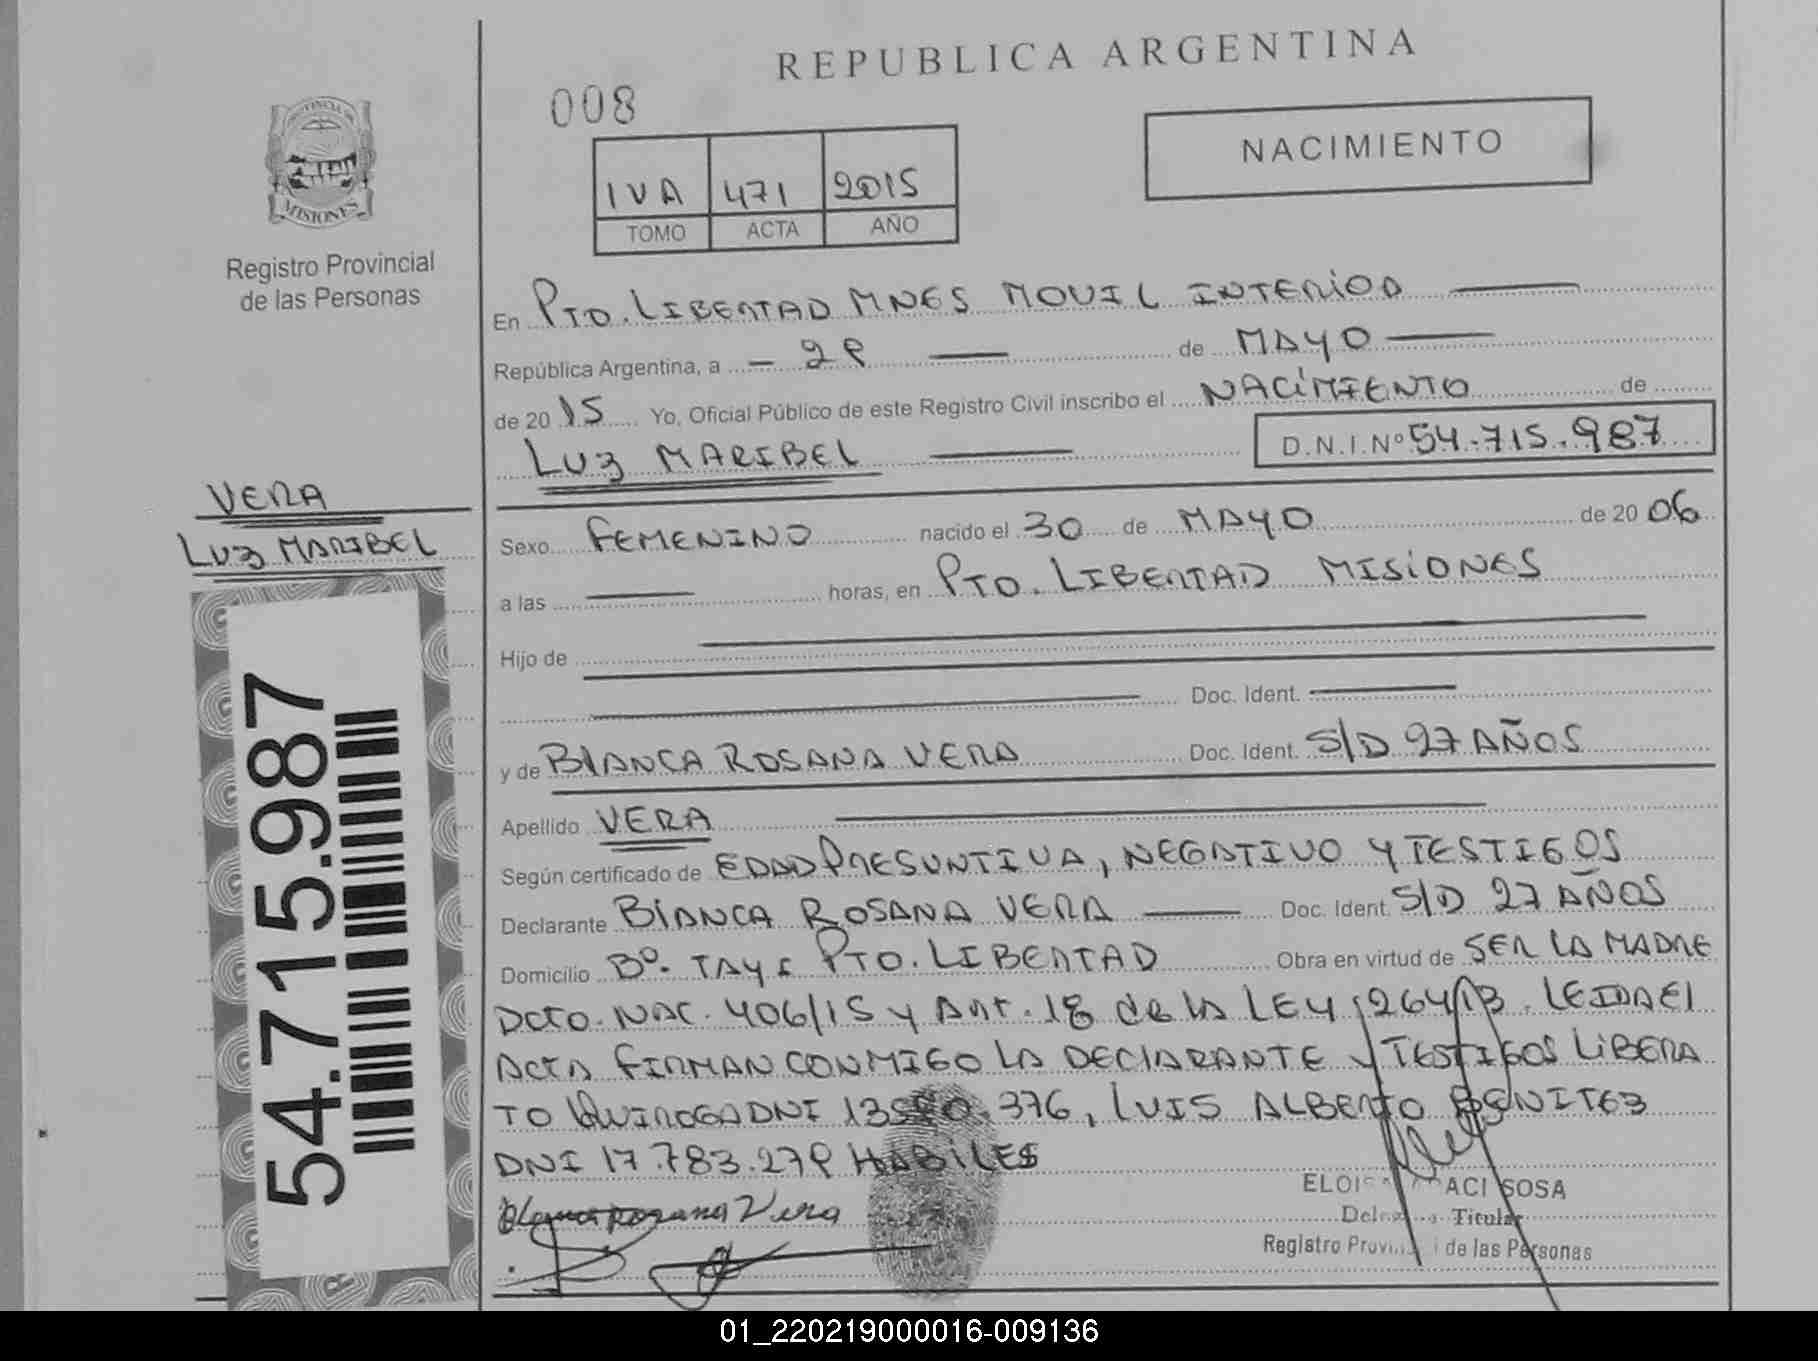 REPUBLICA ARGENTINA
008
NACIMIENTO
IVA 471 2015
TOMO ACTA AÑO
PROVINCIA DE
MISIONES
Registro Provincial
de las Personas
En PTO. LIBERTAD MNES MOVIL INTERIOR
República Argentina, a - 29 de MAYO
de 2015 Yo, Oficial Público de este Registro Civil inscribo el NACIMIENTO de
LUZ MARIBEL D.N.I.Nº 54.715.987
VERA
LUZ MARIBEL
Sexo FEMENINO nacido el 30 de MAYO de 2006
a las horas, en PTO. LIBERTAD MISIONES
Hijo de
Doc. Ident.
y de BLANCA ROSANA VERA Doc. Ident. S/D 27 AÑOS
Apellido VERA
Según certificado de EDAD PRESUNTIVA, NEGATIVO Y TESTIGOS
Declarante BLANCA ROSANA VERA Doc. Ident. S/D 27 AÑOS
Domicilio Bº. TAYI PTO. LIBERTAD Obra en virtud de SER LA MADRE
DCTO. NAC. 406/15 Y ART. 18 de la LEY 26413. LEIDA El
ACTA FIRMAN CONMIGO LA DECLARANTE Y TESTIGOS LIBERA
TO QUIROGA DNI 376, LUIS ALBERTO BENITEZ
DNI 17.783.279 HABILES
Blanca Rosana Vera
SOSA
Titular
Registro de las Personas
54.715.987
01_220219000016-009136